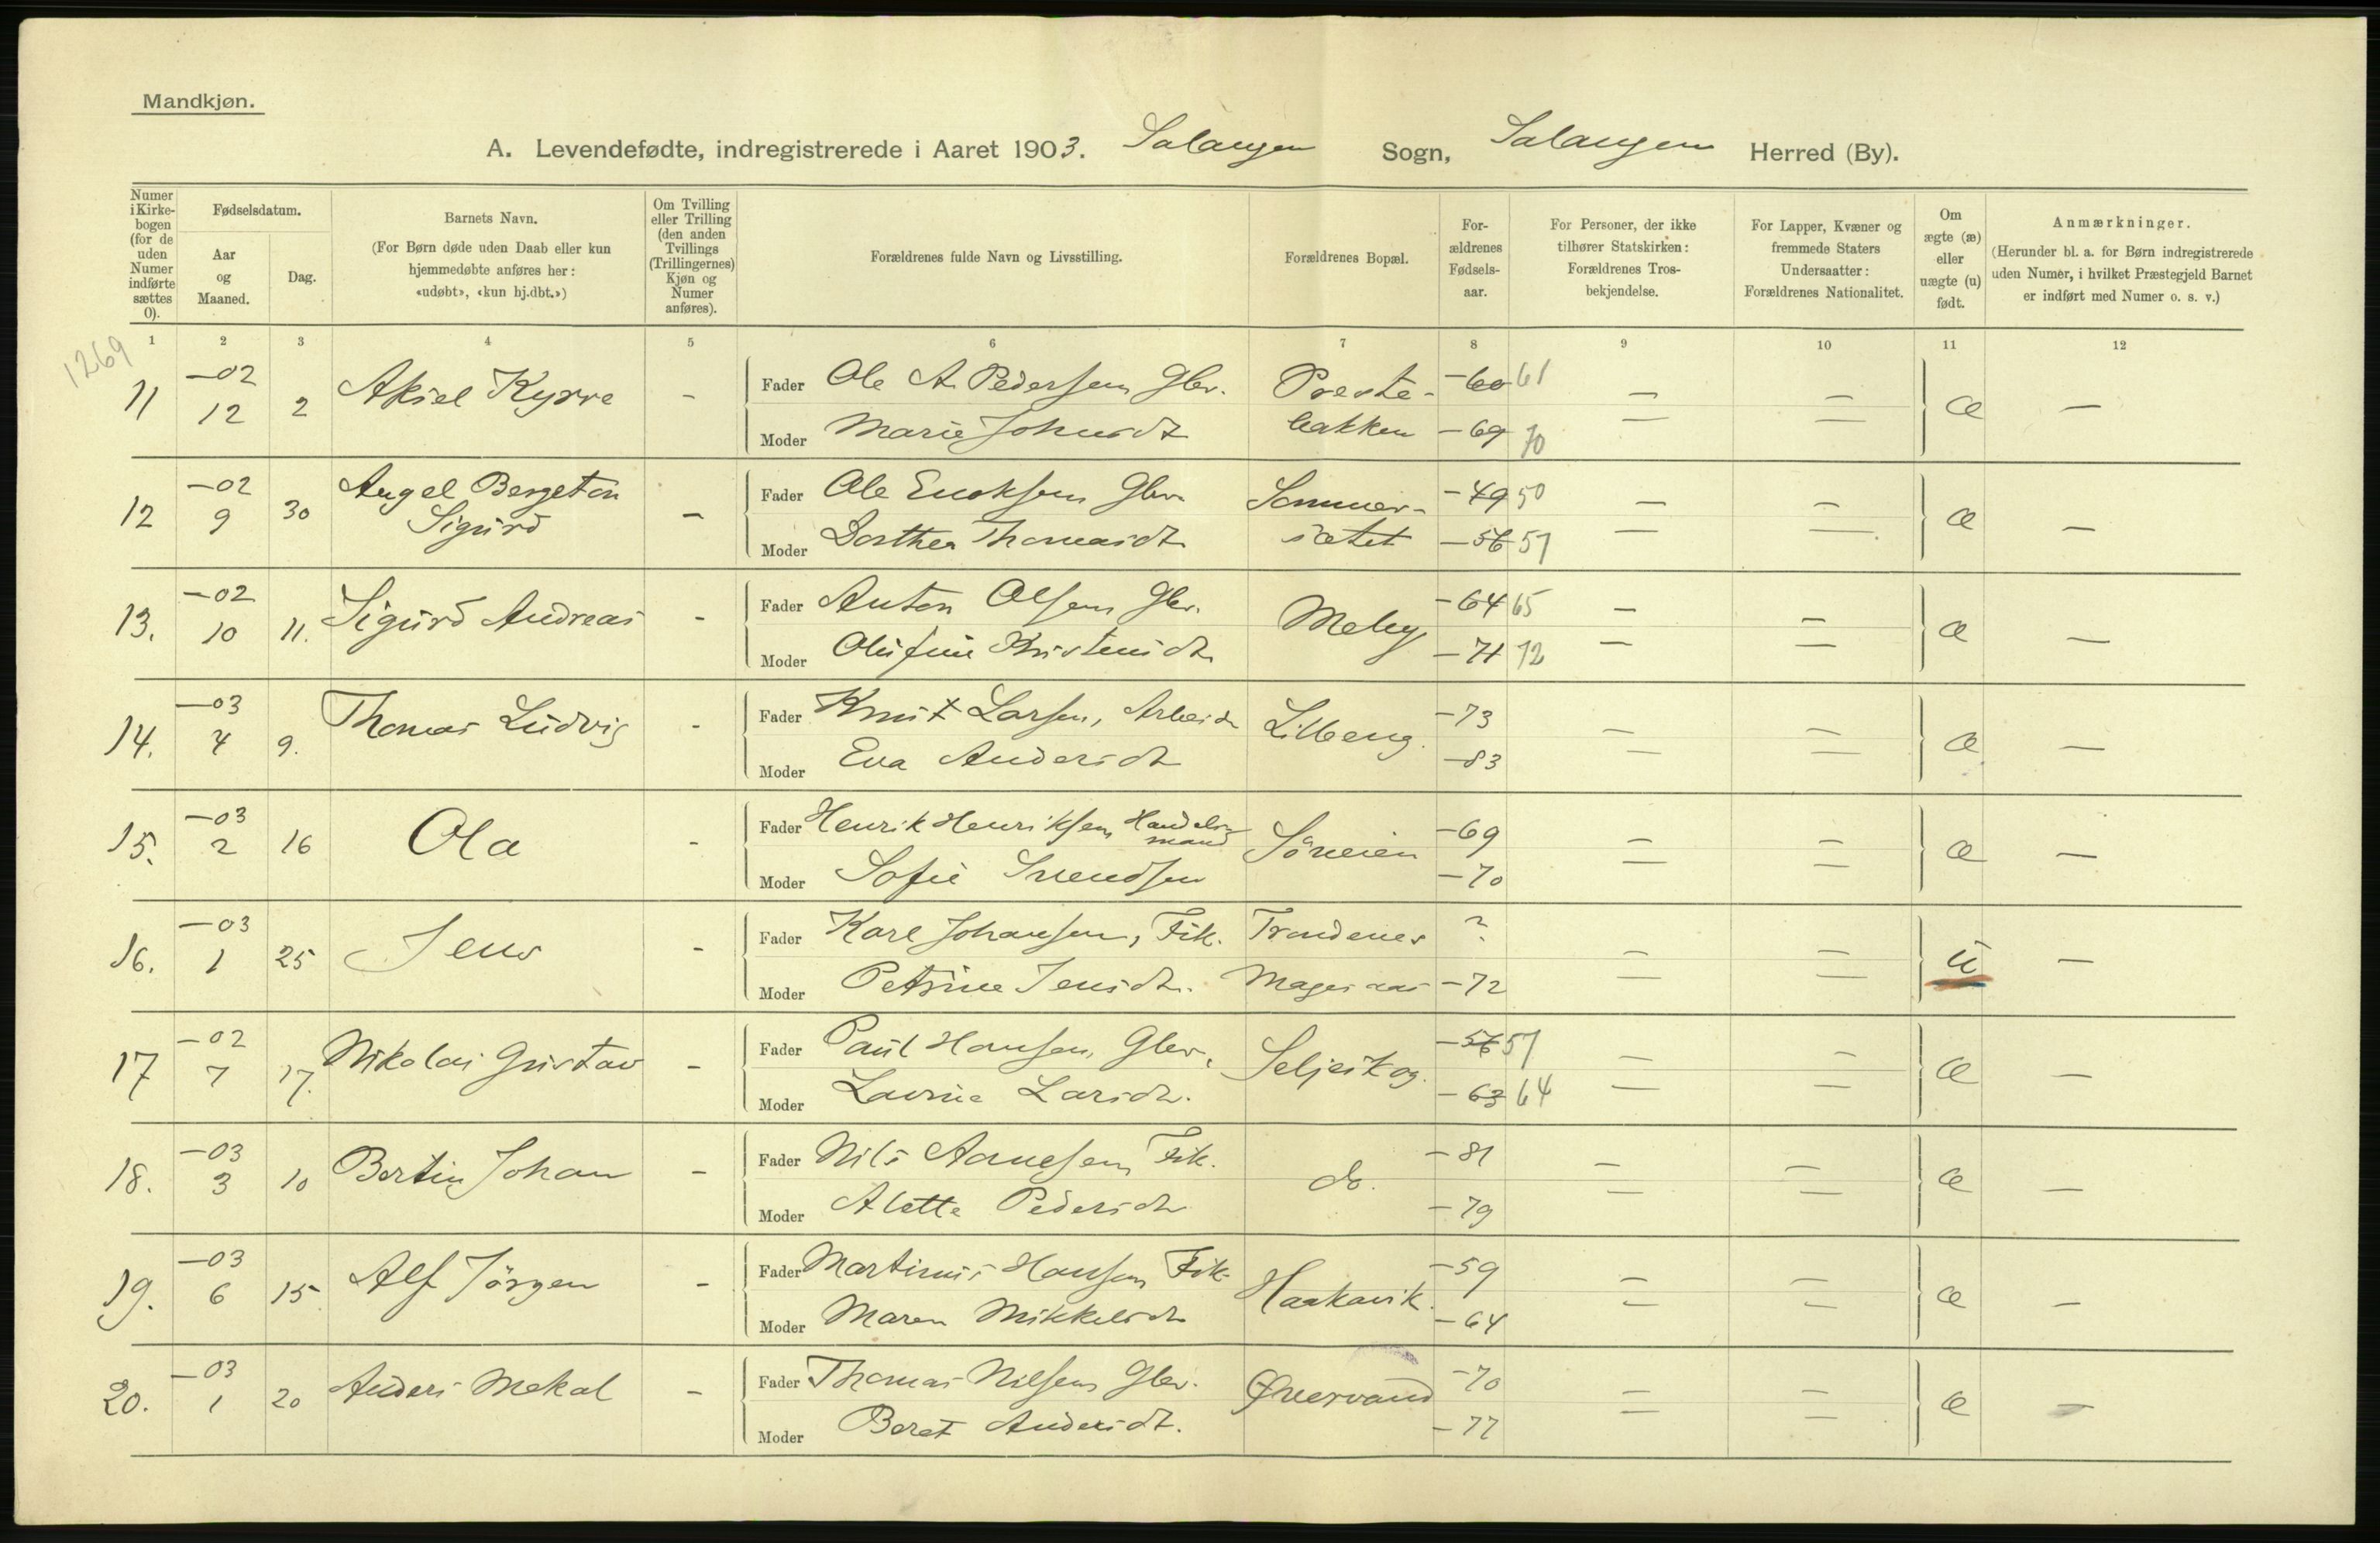 Mandkjøn.
A. Levendefødte, indregistrerede i Aaret 1903. Salangen Sogn, Salangen Herred (By).
Numer i Kirkebogen (for de uden Numer indførte sættes 0).
Fødselsdatum.
Aar og Maaned.
Dag.
Barnets Navn.
(For Børn døde uden Daab eller kun hjemmedøbte anføres her: «udøbt», «kun hj.dbt.»)
Om Tvilling eller Trilling (den anden Tvillings (Trillingernes) Kjøn og Numer anføres).
Forældrenes fulde Navn og Livsstilling.
Forældrenes Bopæl.
Forældrenes Fødselsaar.
For Personer, der ikke tilhører Statskirken: Forældrenes Trosbekjendelse.
For Lapper, Kvæner og fremmede Staters Undersaatter: Forældrenes Nationalitet.
Om ægte (æ) eller uægte (u) født.
Anmærkninger.
(Herunder bl. a. for Børn indregistrerede uden Numer, i hvilket Præstegjeld Barnet er indført med Numer o. s. v.)
1 2 3 4 5 6 7 8 9 10 11 12
1269
11 -02 12 2 Aksel Kyrre - Fader Ole A. Pedersen Gbr. Preste- -60 61 — — æ —
Moder Marie Johnsdt bakken -69 70 — —
12 -02 9 30 Angel Bergeton Sigurd - Fader Ole Enoksen Gbr. Sommer- -49 50 — — æ —
Moder Dorthea Thomasdt sætet -56 57 — —
13. -02 10 11. Sigurd Andreas - Fader Anton Olsen Gbr. Meby -64 65 — — æ —
Moder Olufine Kristensdt -71 72 — —
14. -03 4 9. Thomas Ludvig - Fader Knut Larsen, Arbeid Lilleng. -73 — — æ —
Moder Eva Andersdt -83 — —
15. -03 2 16 Ola - Fader Henrik Henriksen Handelsmand Söveien -69 — — æ —
Moder Sofie Svendsen -70 — —
16. -03 1 25 Jens - Fader Karl Johansen, Fik. Trondenes ? — — u —
Moder Petrine Jensdt. Magesaas -72 — —
17 -02 7 17. Nikolai Gustav - Fader Paul Hansen, Gbr. Seljeskog. -56 57 — — æ —
Moder Lavina Larsdt. -63 64 — —
18. -03 3 10 Bertin Johan - Fader Nils Arnesen Fik. do. -81 — — æ —
Moder Alette Pedersdt -79 — —
19. -03 6 15 Alf Jörgen - Fader Martinus Hansen Fik. Haakavik. -59 — — æ —
Moder Maren Mikkelsdt -64 — —
20. -03 1 20 Anders Mekal - Fader Thomas Nilsen Gbr. Øvervand -70 — — æ —
Moder Beret Andersdt. -77 — —